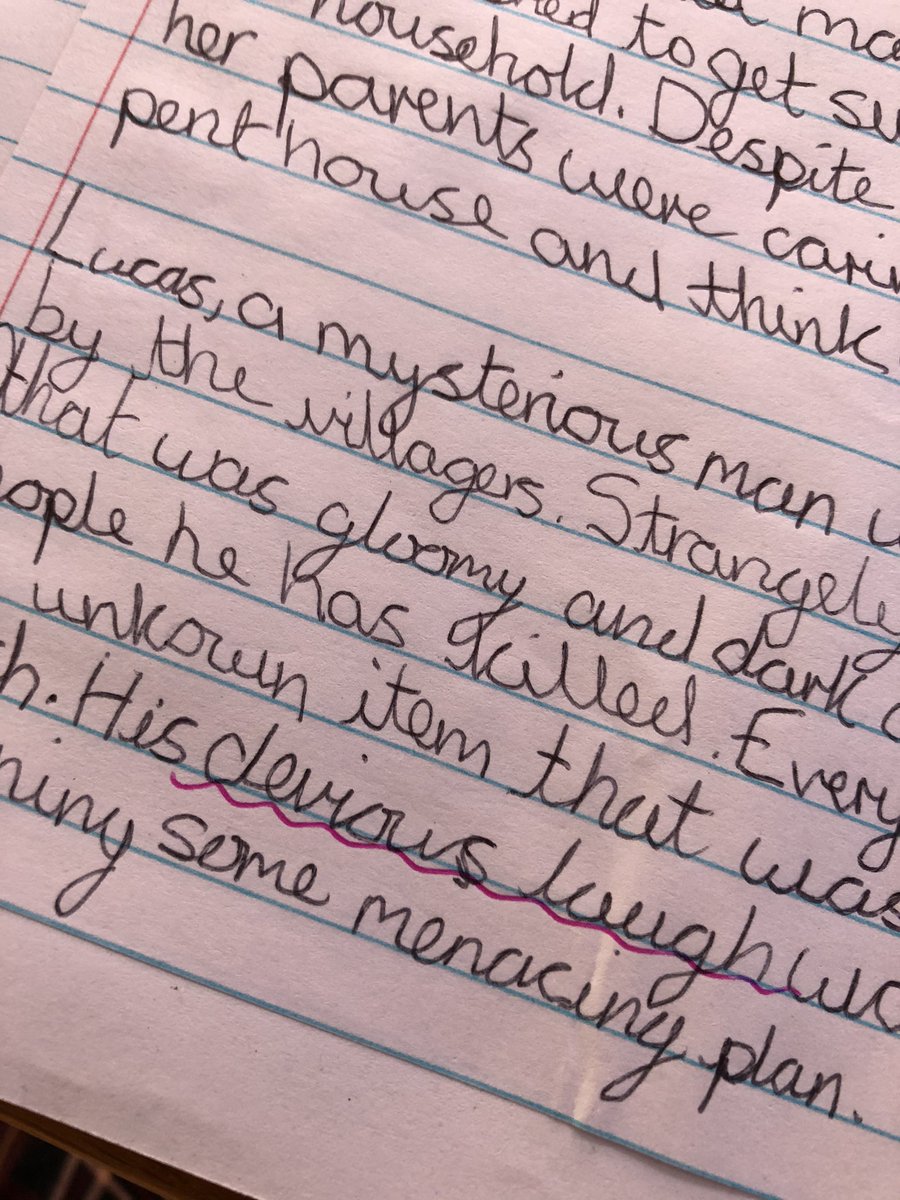 to get
household. Despite
her parents were
penthouse and think
Lucas, a mysterious man
by the villagers. Strangely
that was gloomy and dark
he has killed. Every
unkown item that was
His devious laugh
some menacing plan.